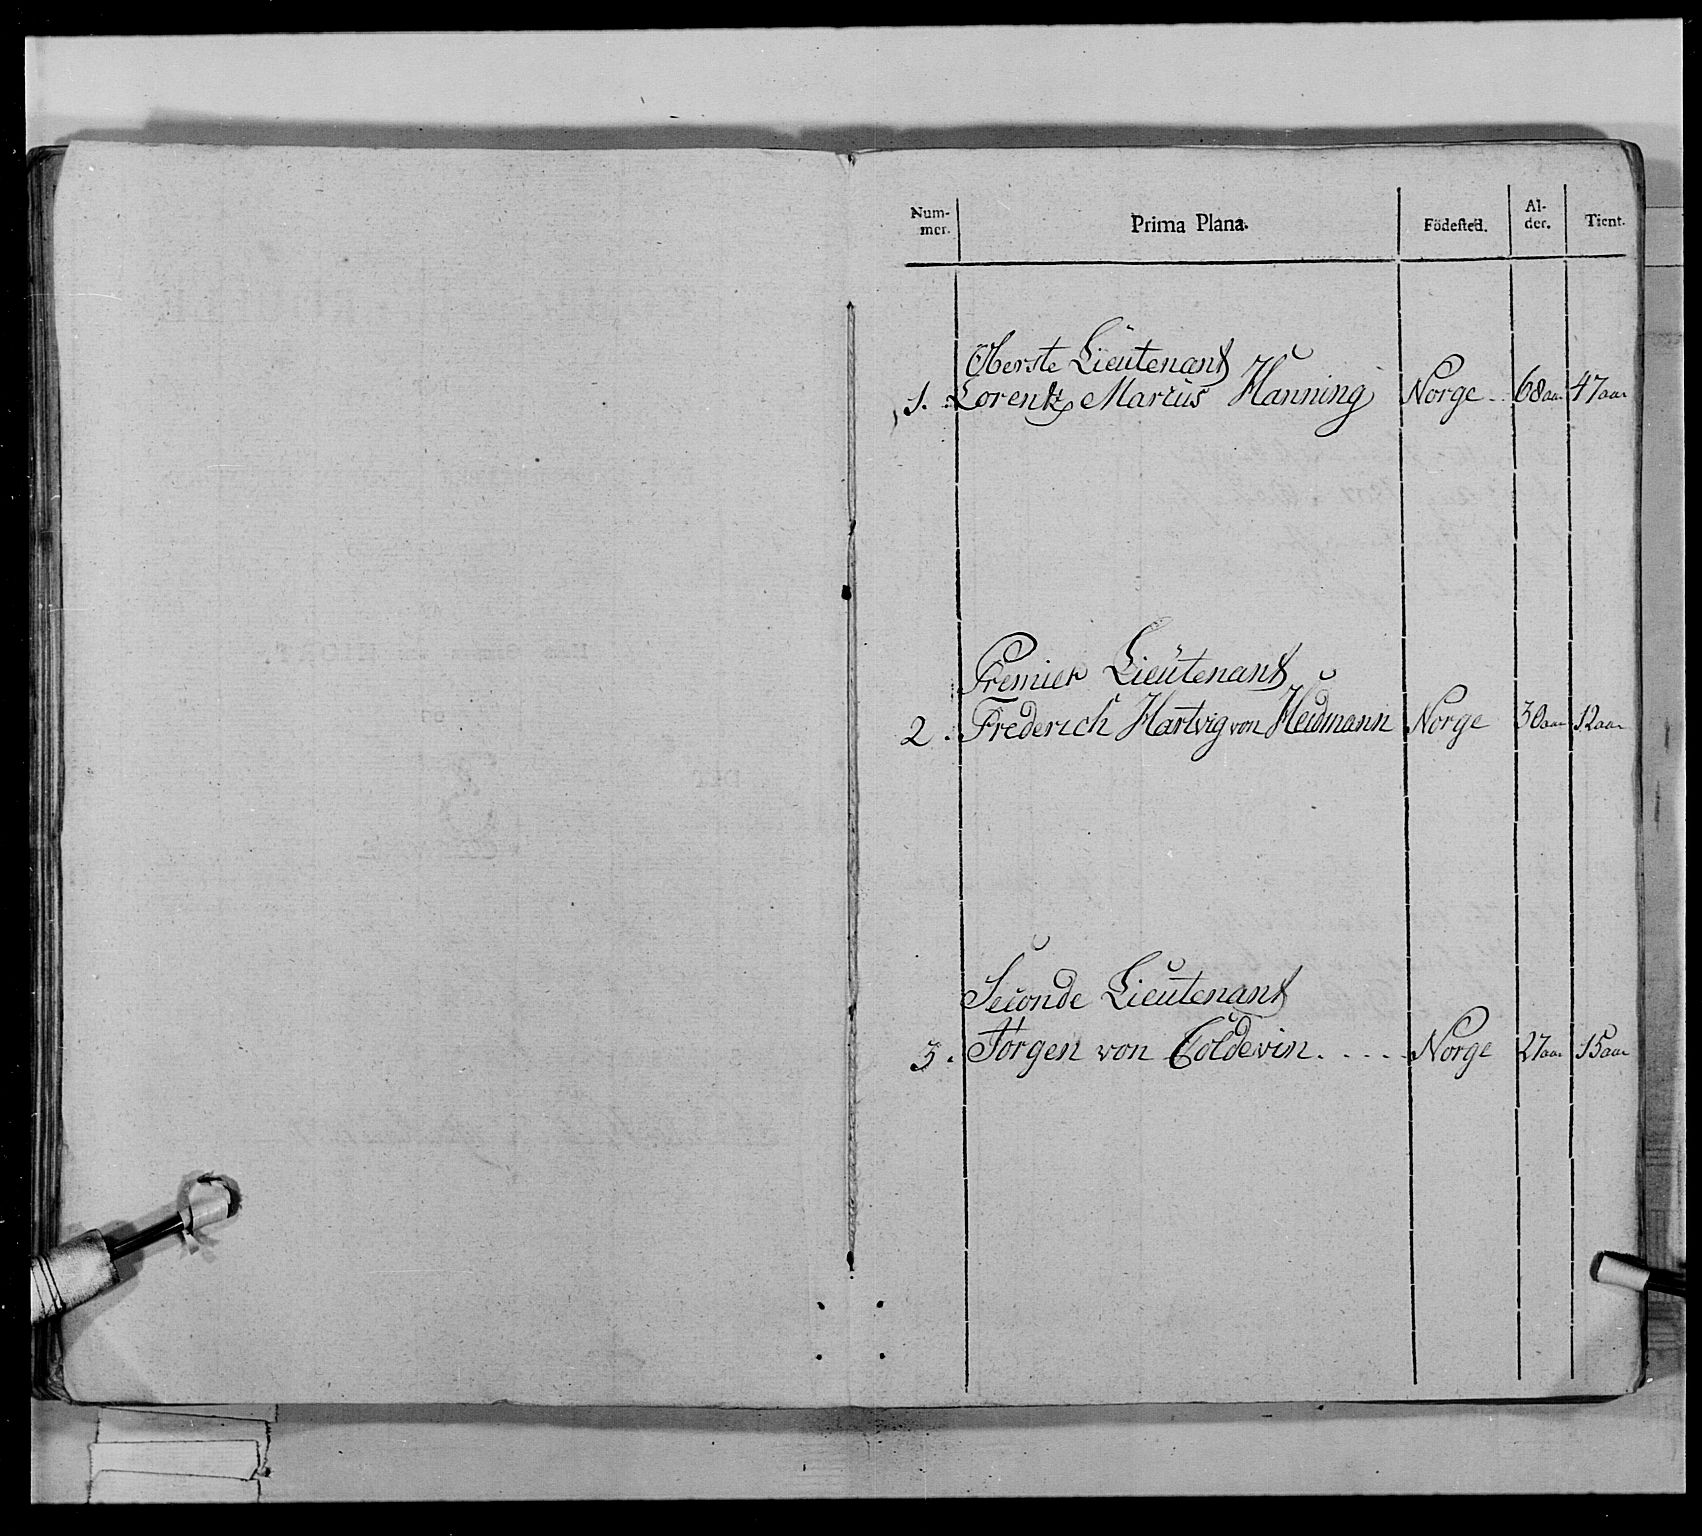 Num-
mer.
Prima Plana.
Födested.
Al-
der.
Tient.
Oberste Lieutenant
1. Lorentz Marius Hanning Norge 68 aar 47 aar
Premier Lieutenant
2. Frederich Hartvig von Heidmann Norge 30 aar 12 aar
Seconde Lieutenant
3. Jörgen von Coldevin . . . . . Norge 27 aar 15 aar